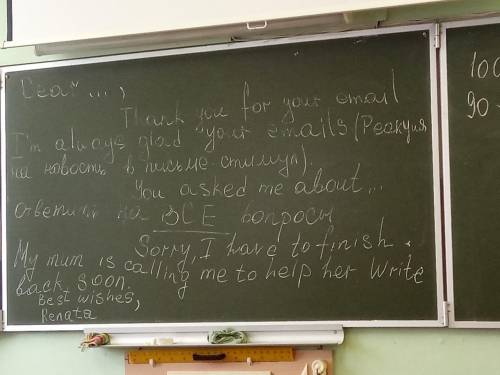 Dear ...,
Thank you for your email
I'm always glad your emails (Реакция
на новость в письме-стимул).
You asked me about...
ответить на ВСЕ вопросы
Sorry, I have to finish.
My mum is calling me to help her Write
back soon.
Best wishes,
Renata
100
90